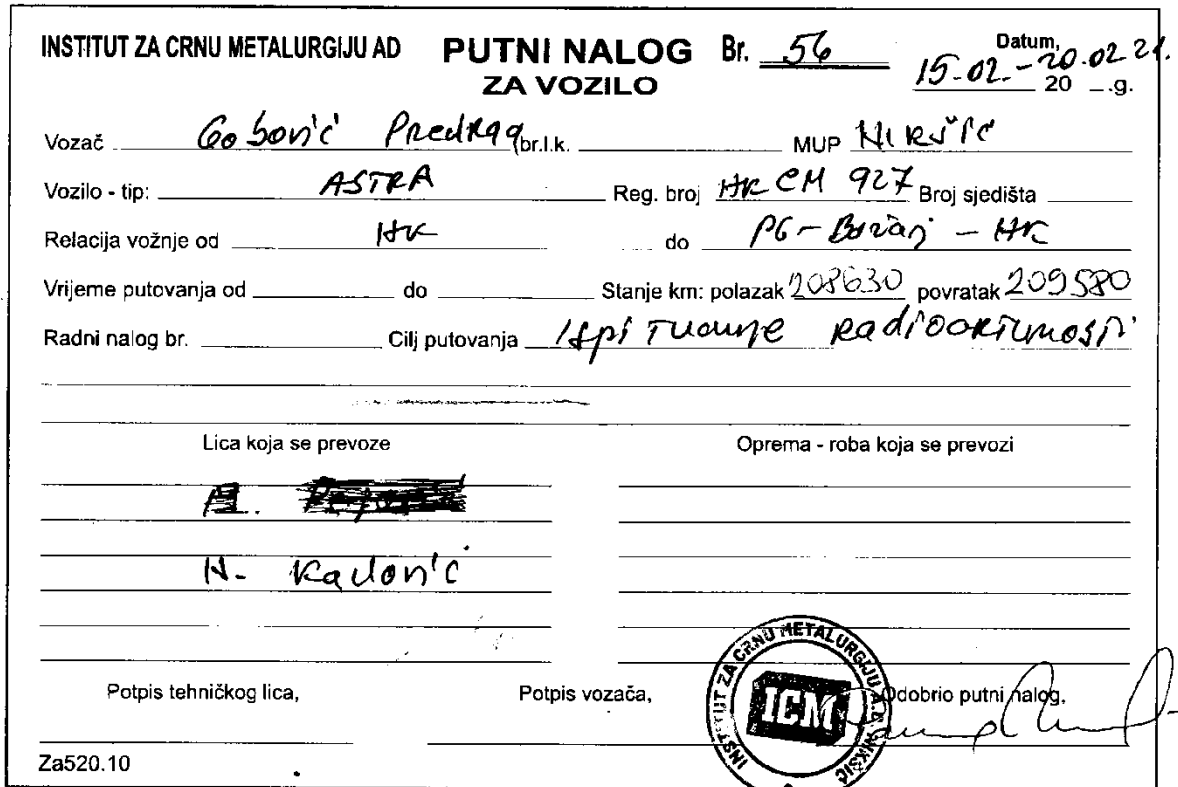 INSTITUT ZA CRNU METALURGIJU AD PUTNI NALOG Br. 56 Datum,
ZA VOZILO 15-02.-20.02.21. 20 .g.
Vozač Predrag br.l.k. MUP Nikšić
Vozilo - tip: ASTRA Reg. broj CM 927 Broj sjedišta
Relacija vožnje od do PG-
Vrijeme putovanja od do Stanje km: polazak 208630 povratak 209580
Radni nalog br. Cilj putovanja Ispitivanje radioaktivnosti
Lica koja se prevoze Oprema - roba koja se prevozi
Potpis tehničkog lica, Potpis vozača, Odobrio putni nalog,
INSTITUT ZA CRNU METALURGIJU A.D. NIKŠIĆ
ICM
Za520.10